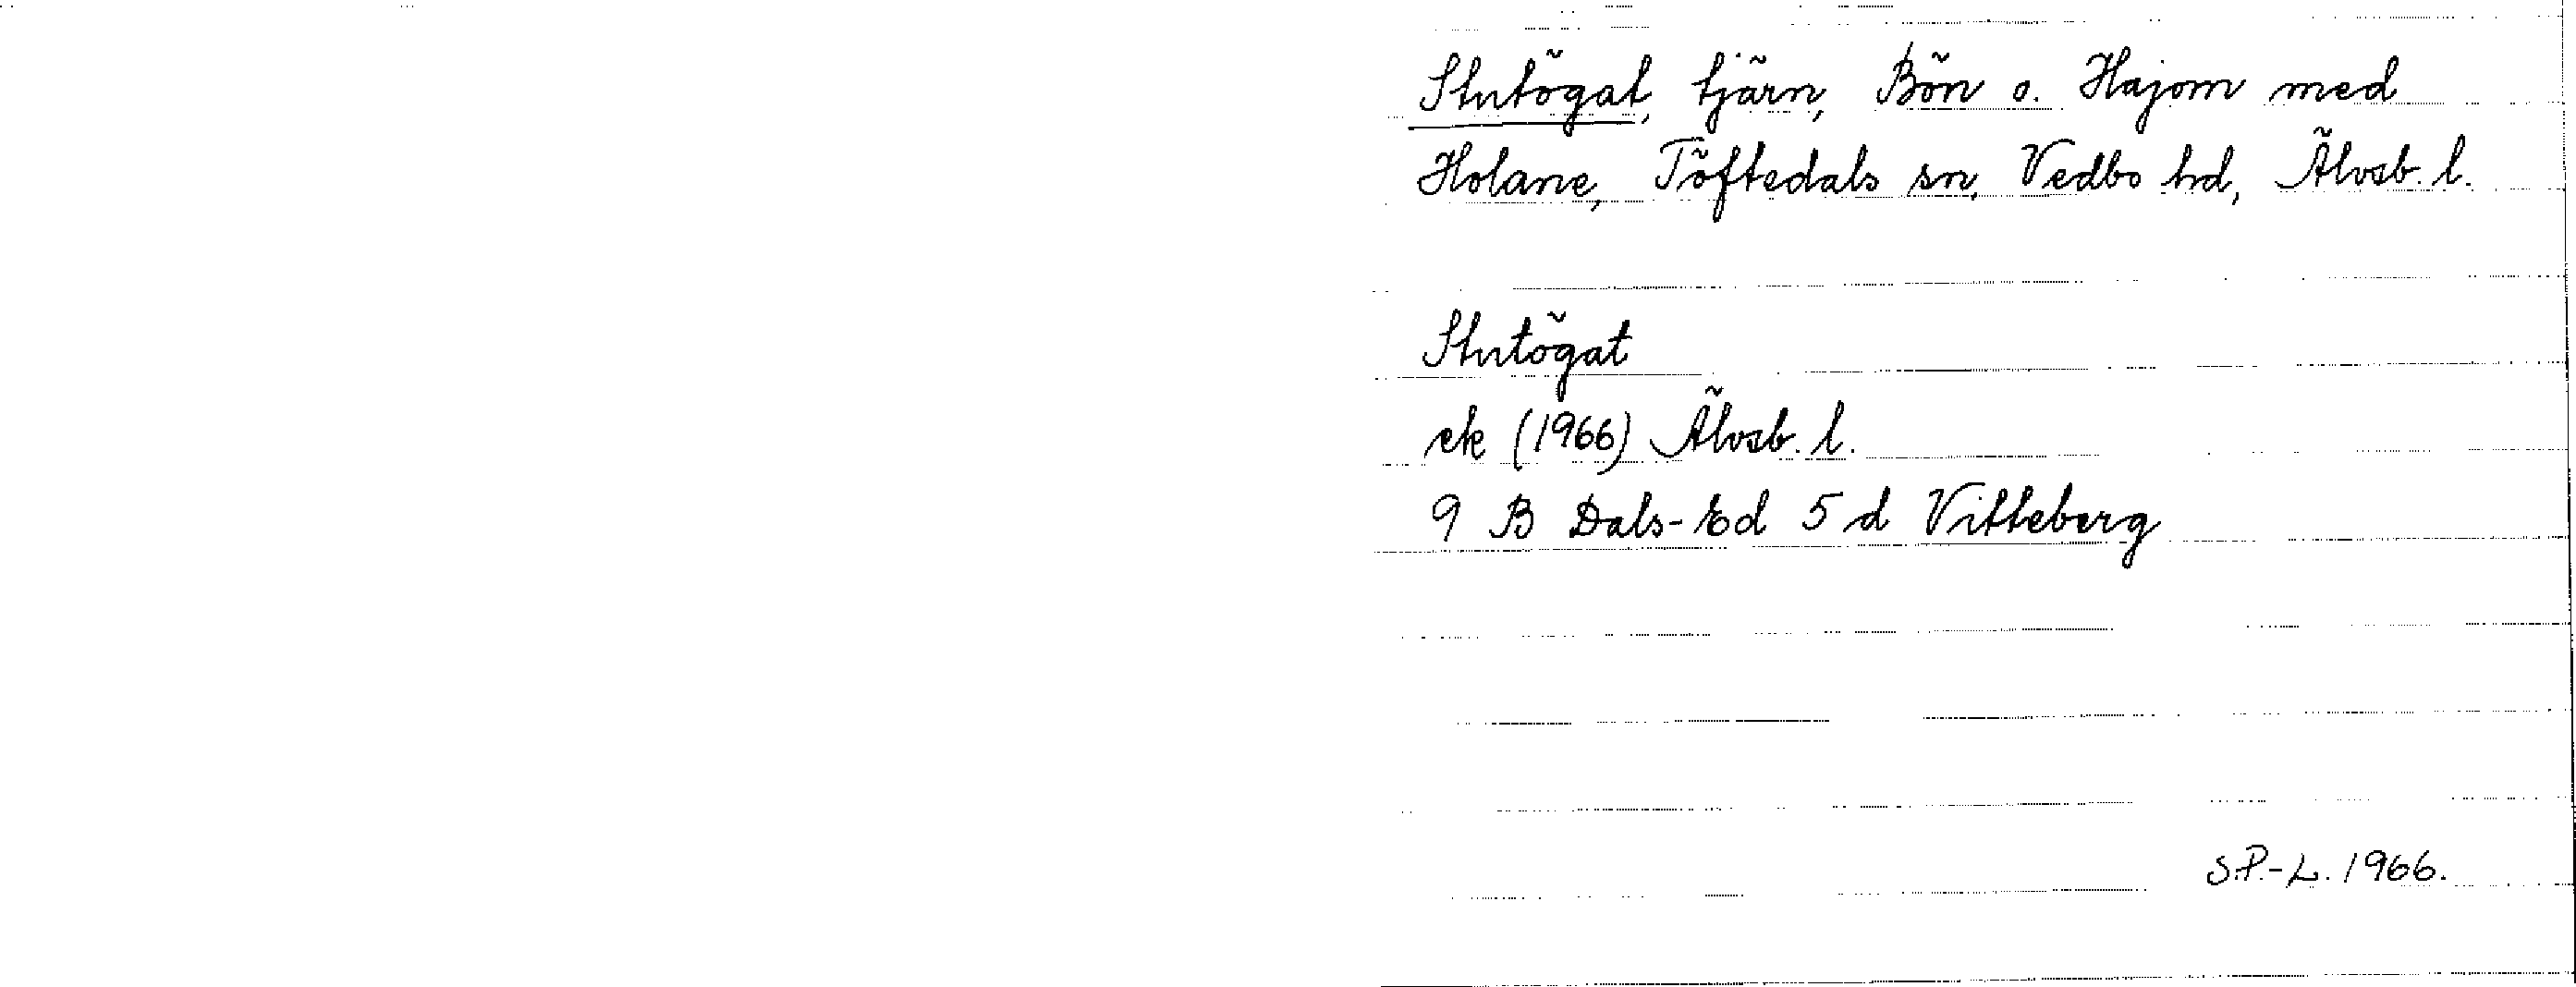 Stutögat, tjärn, Bön o. Hajom med
Holane, Töftedals sn, Vedbo hd, Älvsb. l.
Stutögat
ek (1966) Älvsb. l.
9 B Dals-Ed 5 d Vitteberg
S.P.-L. 1966.